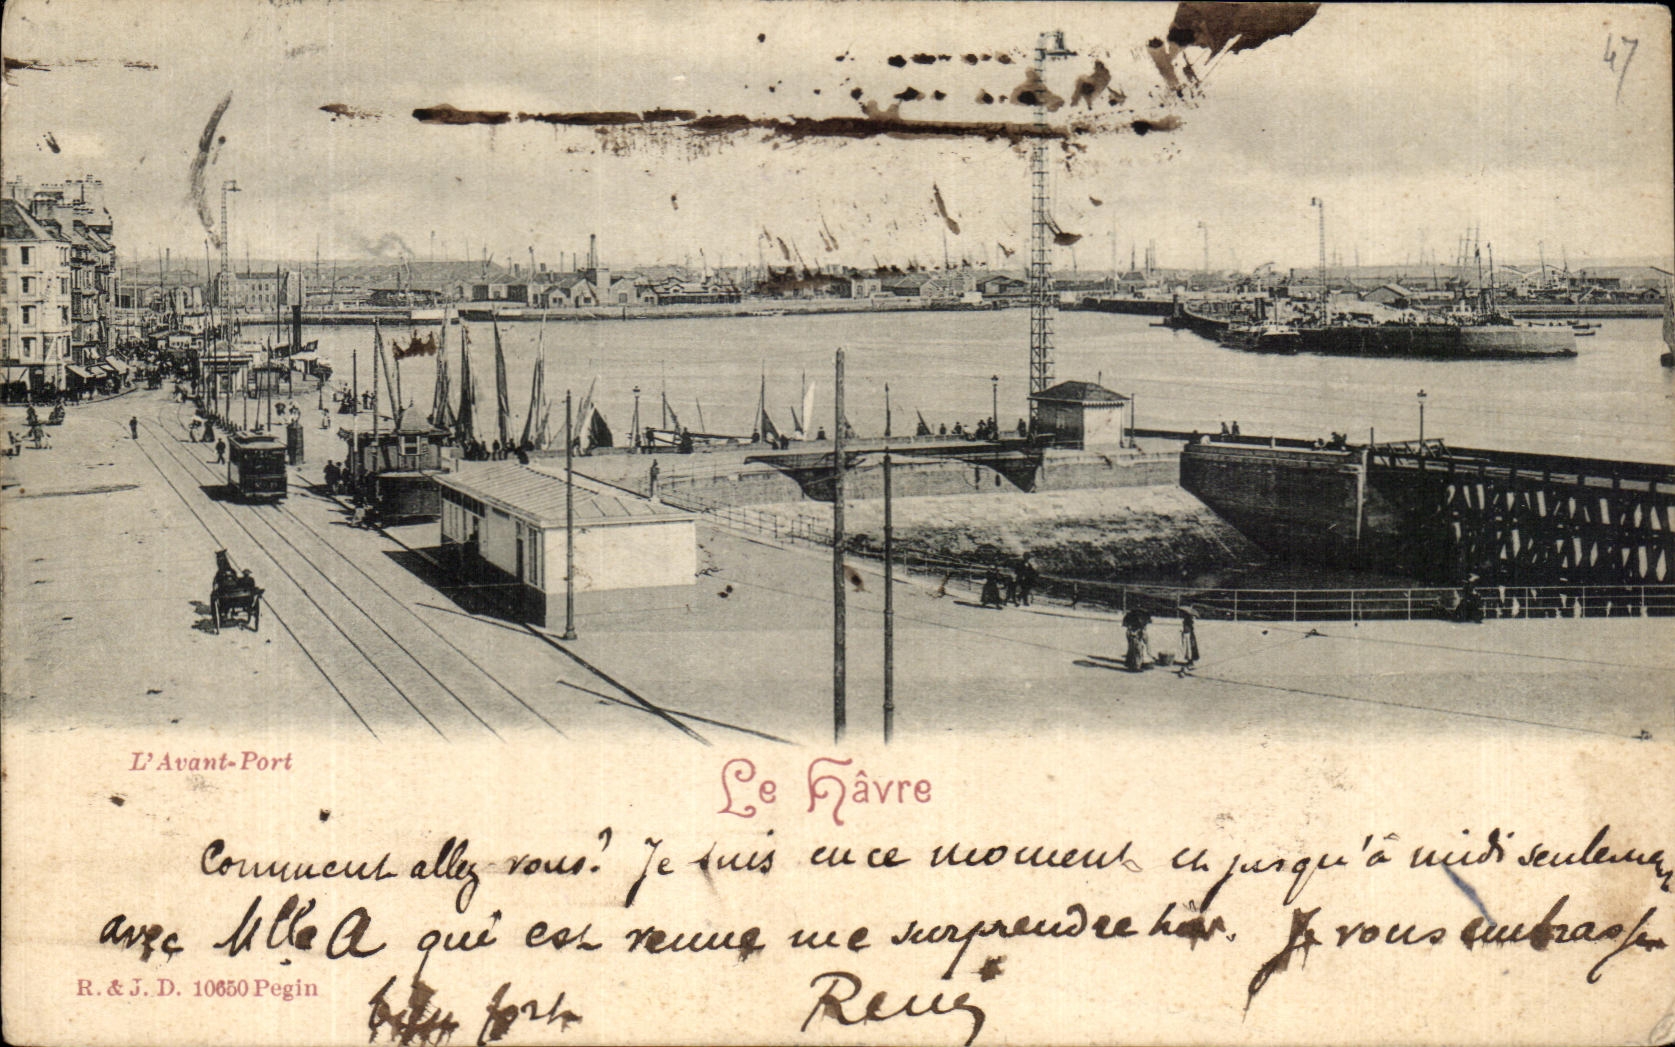 47
L'Avant-Port
Le Hâvre
Comment allez vous? Je suis en ce moment et jusqu'à midi seulement
avec Mlle A qui est venue me surprendre hier. Je vous embrasse
R. & J. D. 10650 Pegin
bien fort René